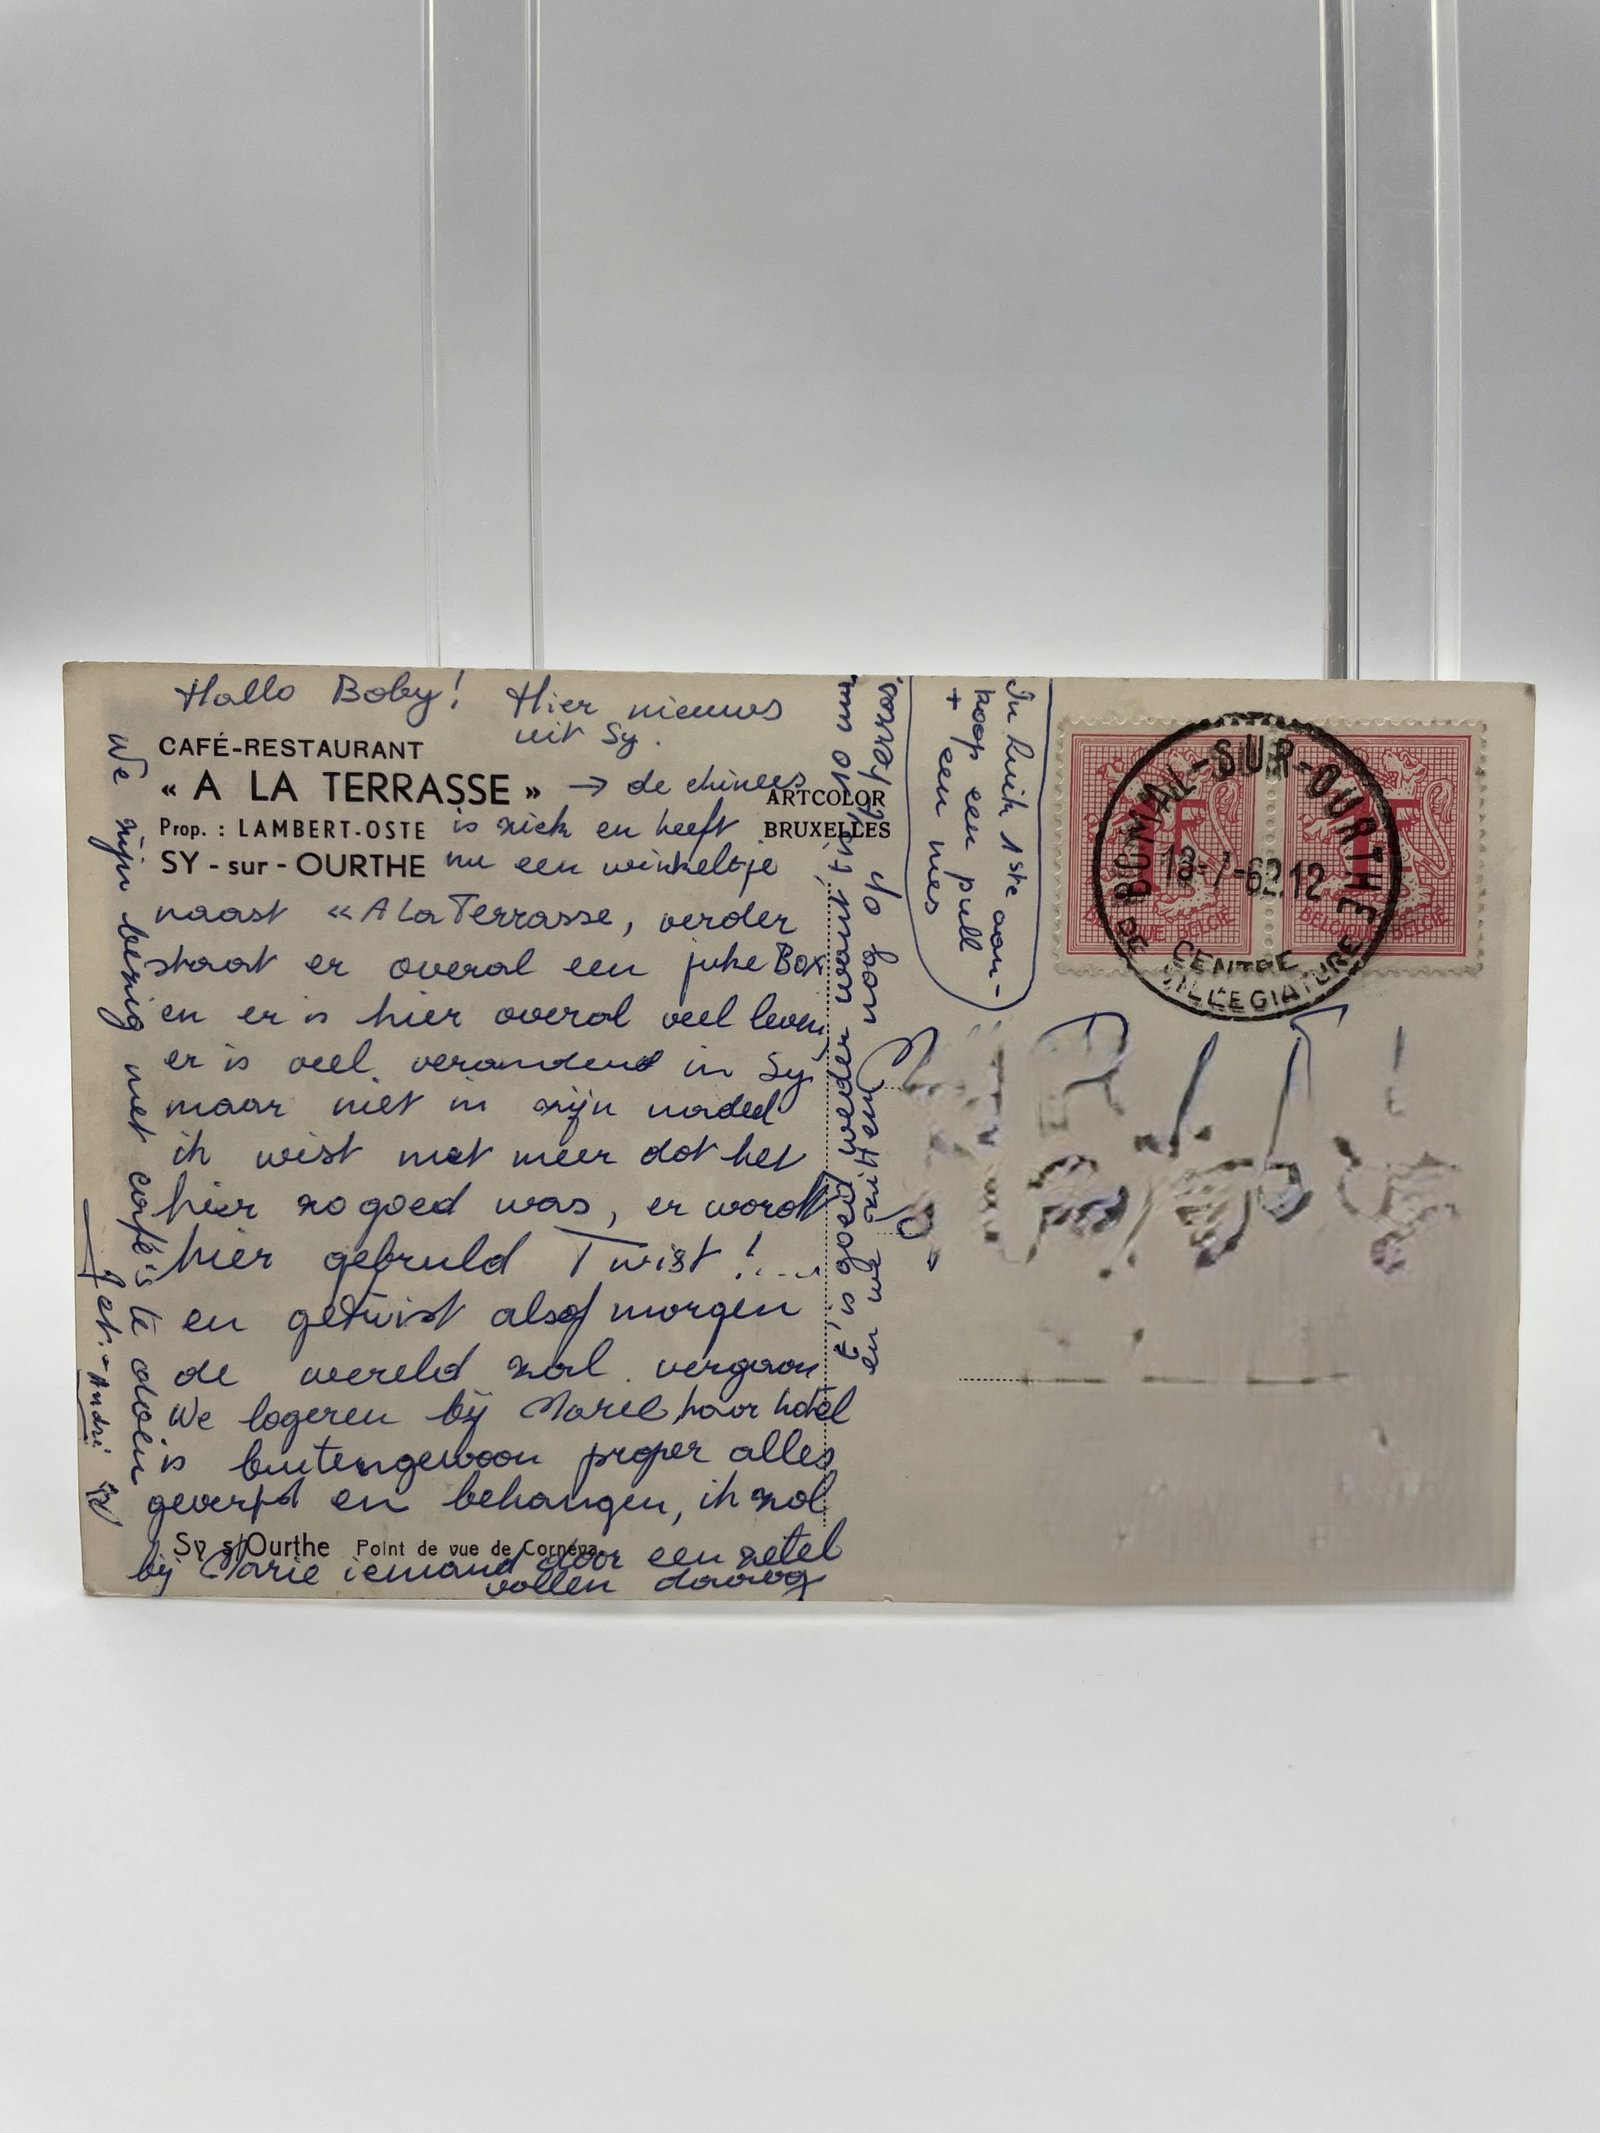 Hallo Boby! Hier nieuws
uit Sy.
CAFÉ-RESTAURANT
« A LA TERRASSE » → de chinees
ARTCOLOR
Prop. : LAMBERT-OSTE is ziek en heeft
BRUXELLES
SY - sur - OURTHE nu een winkeltje
naast « A La Terrasse, verder
staat er overal een juke Box
en er is hier overal veel leven
er is veel veranderd in Sy
maar niet in zijn nadeel
ik wist niet meer dat het
hier zo goed was, er wordt
hier gebruld Twist !....
en getwist alsof morgen
de wereld zal vergaan
We logeren bij Marie, haar hotel
is buitengewoon proper alles
geverfd en behangen, ik zal
Sy s/Ourthe Point de vue de Cornéva.
bij Marie iemand door een zetel
vallen
We zijn bezig met café's te doen
Jet. - André
't is goed weder want
en we zitten nog op 't terras
In Luik 1ste aan-
koop een pull
+ een mes
BOMAL-SUR-OURTHE
18-7-62 12
CENTRE
DE VILLEGIATURE
F F
BELGIQUE BELGIE BELGIQUE BELGIE